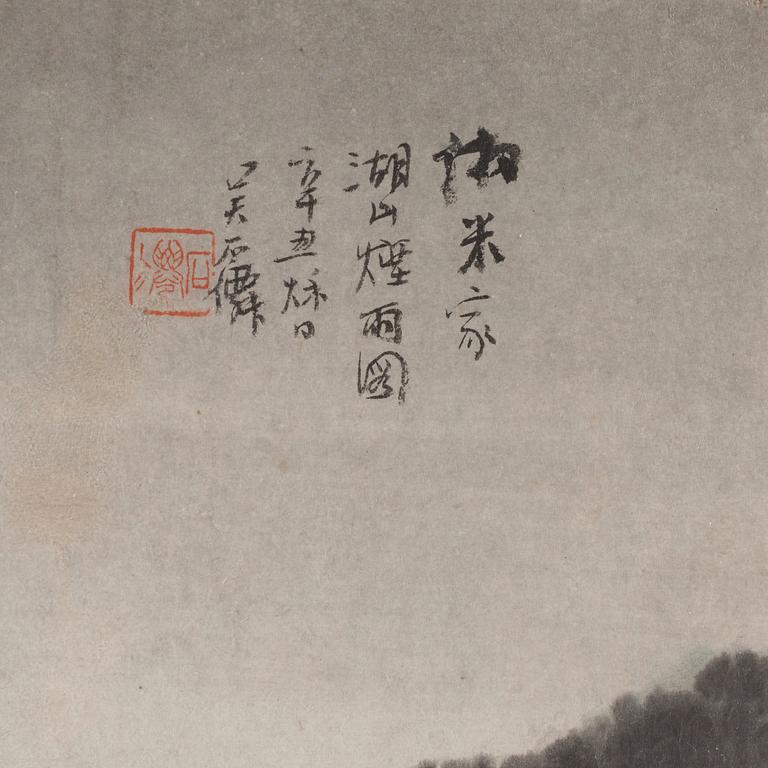 倣米家
湖山煙雨圖
辛丑秋日
吴石僊
石僊